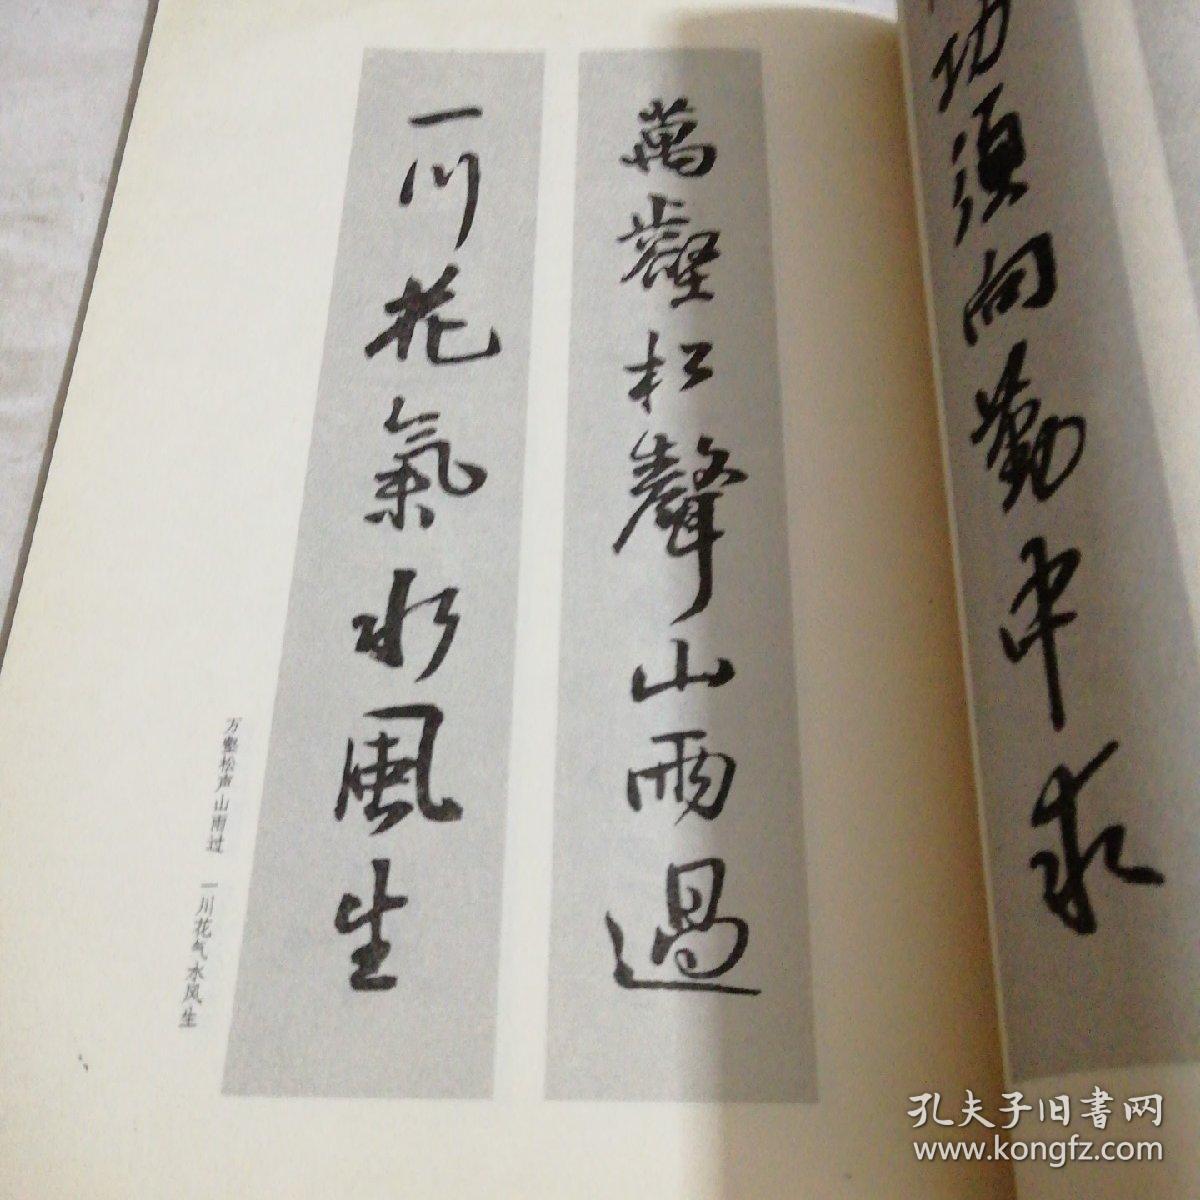 功须向勤中求
萬壑松聲山雨過
一川花氣水風生
万壑松声山雨过 一川花气水风生
孔夫子旧書网
www.kongfz.com